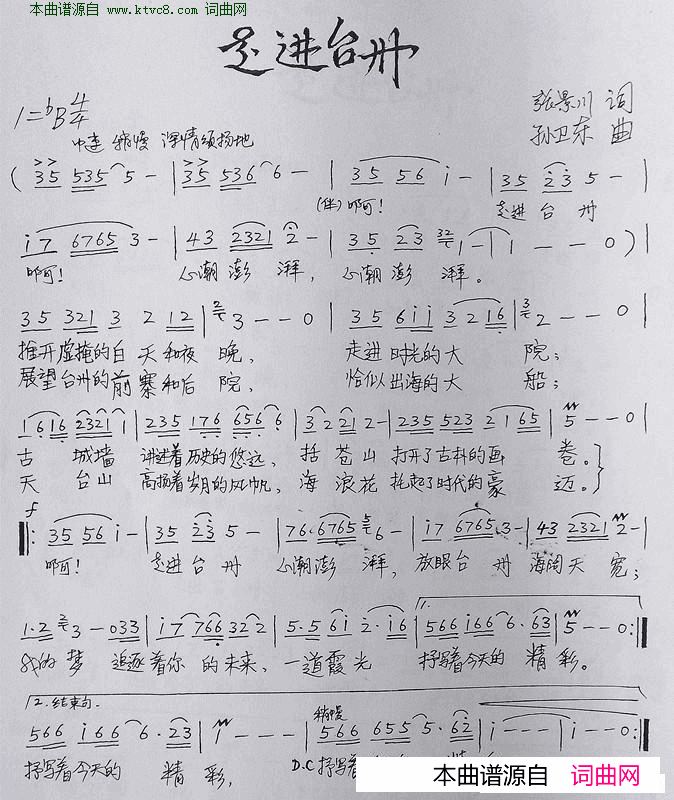 本曲谱源自 www.ktvc8.com 词曲网
走进台州
1=bB 4/4
张景川 词
中速 稍慢 深情颂扬地
孙卫东 曲
( 35 535 5 - | 35 536 6 - | 35 56 i - | 35 23 5 - |
(伴)啊! 走进台州
i7 6765 3 - | 43 2321 2 - | 35 23 32 1 - | 1 - - 0 ) |
啊! 心潮澎湃, 心潮澎湃。
35 321 3 2 12 | 2 3 - - 0 | 35 6ii 3 2 16 | 3 2 - - 0 |
推开虚掩的白天和夜晚, 走进时光的大院;
展望台州的前寨和后院, 恰似出海的大船;
1616 2321 1 | 235 176 656 6 | 3 2 21 2 - | 235 523 2 165 | 5 - - 0 |
古城墙 讲述着历史的悠远, 括苍山 打开了古朴的画卷。
天台山 高扬着岁月的风帆, 海浪花 托起了时代的豪迈。
f
35 56 i - | 35 23 5 - | 76·6765 6 - | i7 6765 3 - | 43 2321 2 - |
啊! 走进台州 心潮澎湃, 放眼台州 海阔天宽;
1·2 2 3 - 033 | i7 766 32 2 | 5·5 6i 2·i6 | 566 i66 6·63 | 5 - - 0 :|
1.
我的梦 追逐着你的未来, 一道霞光 抒写着今天的精彩。
2. 结束句.
稍慢
566 i66 6·23 | i - - - | 566 655 5·62 | i - - - | i - - 0 :|
抒写着今天的精彩, D.C 抒写着
本曲谱源自 词曲网